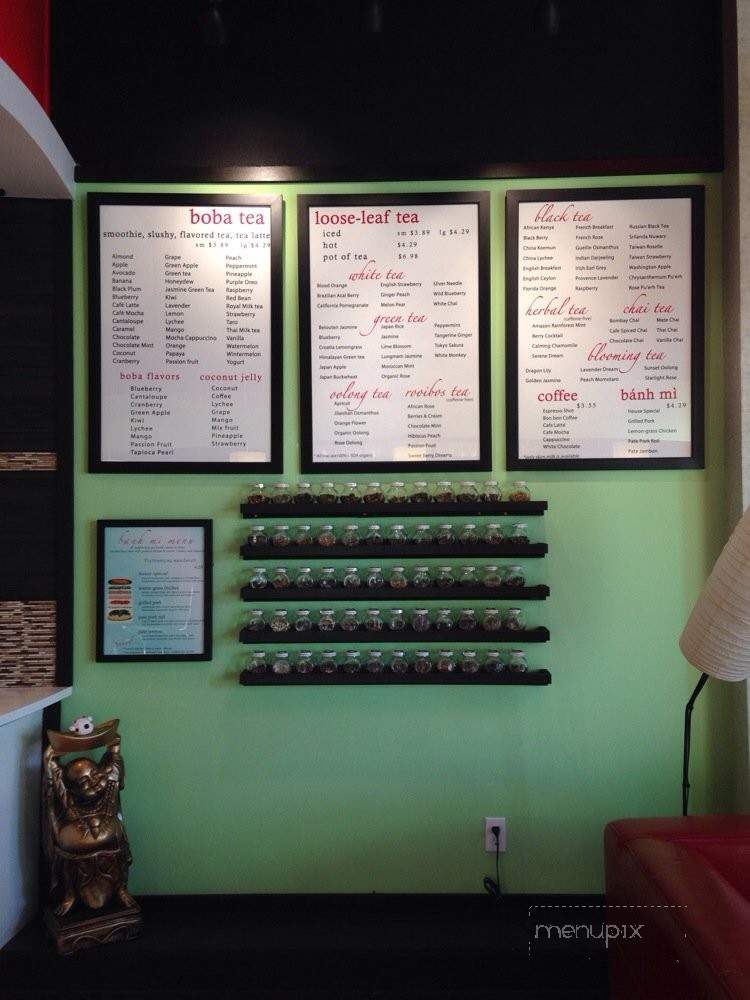 boba tea
smoothie, slushy, flavored tea, tea latte
sm $3.89 lg $4.29
Almond Grape Peach
Apple Green Apple Peppermint
Avocado Green tea Pineapple
Banana Honeydew Purple Dreo
Black Plum Jasmine Green Tea Raspberry
Blueberry Kiwi Red Bean
Café Latte Lavender Royal Milk tea
Café Mocha Lemon Strawberry
Cantaloupe Lychee Taro
Caramel Mango Thai Milk tea
Chocolate Mocha Cappuccino Vanilla
Chocolate Mint Orange Watermelon
Coconut Papaya Wintermelon
Cranberry Passion fruit Yogurt
boba flavors coconut jelly
Blueberry Coconut
Cantaloupe Coffee
Cranberry Lychee
Green Apple Grape
Kiwi Mango
Lychee Mix fruit
Mango Pineapple
Passion Fruit Strawberry
Tapioca Pearl
loose-leaf tea
iced sm $3.89 lg $4.29
hot $4.29
pot of tea $6.98
white tea
Blood Orange English Strawberry Silver Needle
Brazilian Acai Berry Ginger Peach Wild Blueberry
California Pomegranate Melon Pear White Chai
green tea
Belouten Jasmine Japan Rice Peppermint
Blueberry Jasmine Tangerine Ginger
Croatia Lemongrass Lime Blossom Tokyo Sakura
Himalayan Green tea Longmont Jasmine White Monkey
Japan Apple Moroccan Mint
Japan Buckwheat Organic Rose
oolong tea rooibos tea
(caffeine-free)
Apricot African Rose
Jiaoshan Osmanthus Berries & Cream
Orange Flower Chocolate Mint
Organic Oolong Hibiscus Peach
Rose Oolong Passion Fruit
Sweet Berry Dreams
black tea
African Kenya French Breakfast Russian Black Tea
Black Berry French Rose Srilanda Nuwars
China Keemun Gueilin Osmanthus Taiwan Roselle
China Lychee Indian Darjeeling Taiwan Strawberry
English Breakfast Irish Earl Grey Washington Apple
English Ceylon Provence Lavender Chrysanthemum Pu'erh
Florida Orange Raspberry Rose Pu'erh Tea
herbal tea chai tea
(caffeine-free)
Amazon Rainforest Mint Bombay Chai Mate Chai
Berry Cocktail Cafe Spiced Chai Thai Chai
Calming Chamomile Chocolate Chai Vanilla Chai
Serene Dream
blooming tea
Dragon Lily Lavender Dream Sunset Oolong
Golden Jasmine Peach Momotaro Starlight Rose
coffee bánh mì
$3.55 $4.29
Espresso Shot House Special
Bon bon Coffee Grilled Pork
Cafe Latte Lemon-grass Chicken
Cafe Mocha Pate Pork Roll
Cappuccino Pate Jambon
White Chocolate
banh mi menu
Vietnamese sandwich
house special
lemon-grass chicken
grilled pork
pate pork roll
pate jambon
menupix